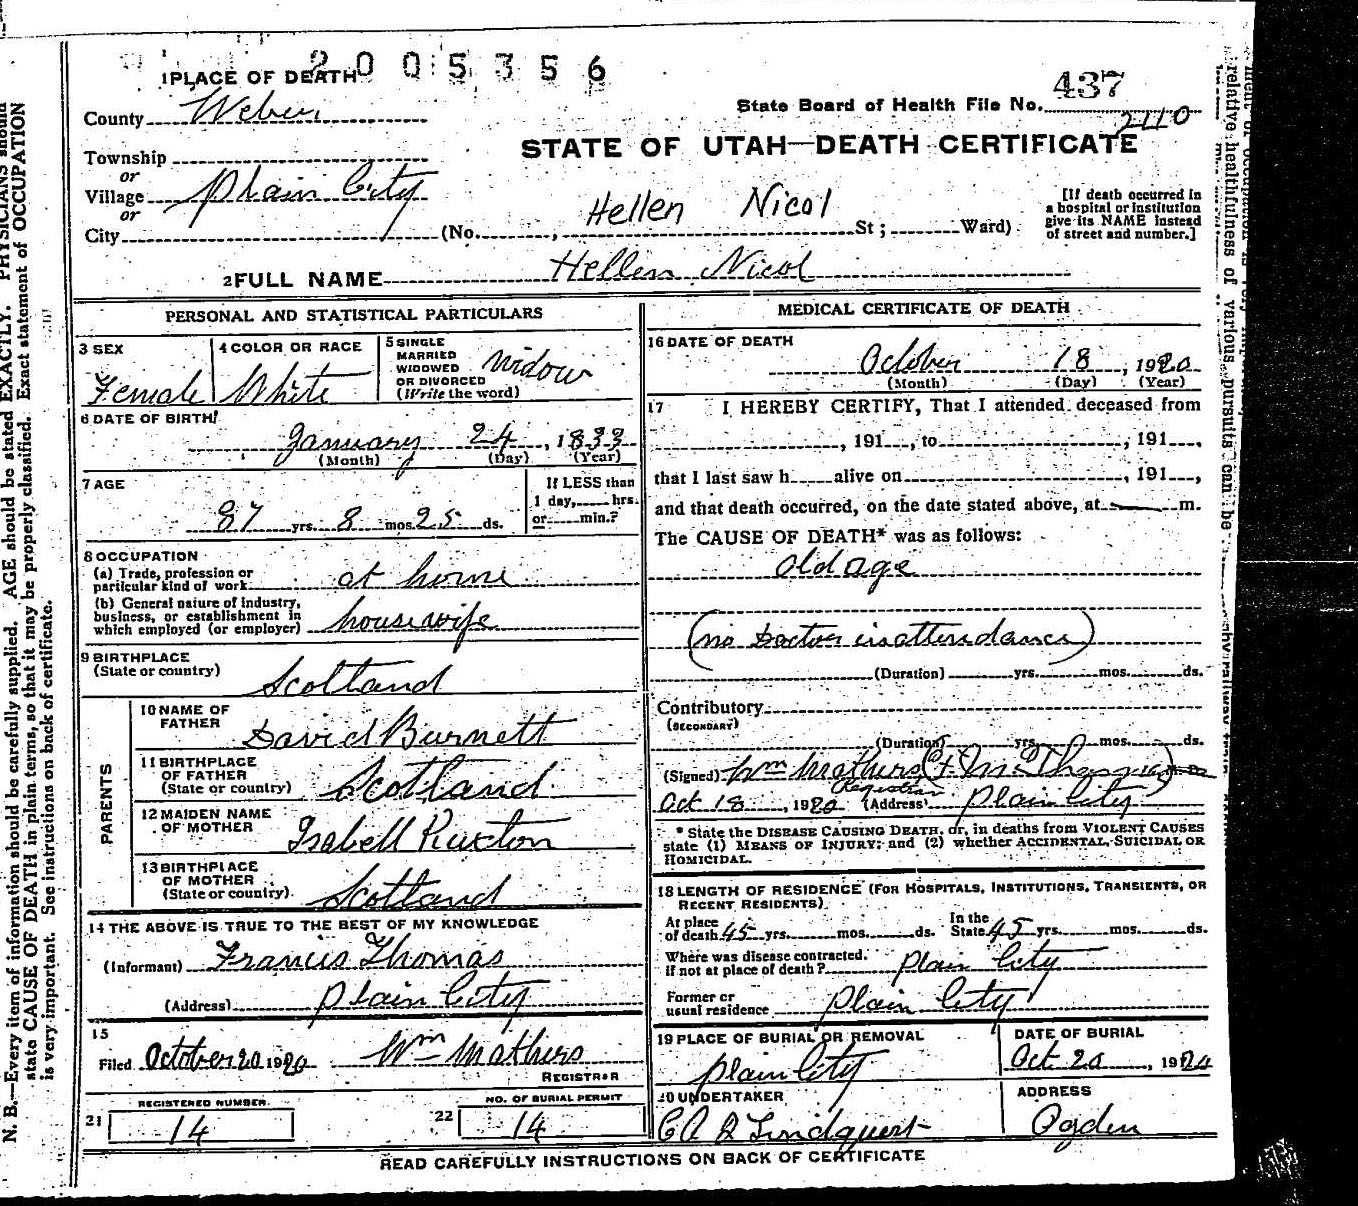 2005356
1 PLACE OF DEATH
437
County Weber
State Board of Health File No.
2110
Township
STATE OF UTAH—DEATH CERTIFICATE
or
Village Plain City
or
Hellen Nicol
[If death occurred in
a hospital or institution
give its NAME instead
of street and number.]
City (No. , St; Ward)
2 FULL NAME Hellen Nicol
PERSONAL AND STATISTICAL PARTICULARS
3 SEX
Female
4 COLOR OR RACE
White
5 SINGLE
MARRIED
WIDOWED
OR DIVORCED
(Write the word)
Widow
6 DATE OF BIRTH
January 24, 1833
(Month) (Day) (Year)
7 AGE
87 yrs. 8 mos. 25 ds.
If LESS than
1 day, hrs.
or min.?
8 OCCUPATION
(a) Trade, profession or
particular kind of work at home
(b) General nature of industry,
business, or establishment in
which employed (or employer) housewife
9 BIRTHPLACE
(State or country)
Scotland
PARENTS
10 NAME OF
FATHER
David Burnett
11 BIRTHPLACE
OF FATHER
(State or country) Scotland
12 MAIDEN NAME
OF MOTHER
Isabell Ruxton
13 BIRTHPLACE
OF MOTHER
(State or country) Scotland
14 THE ABOVE IS TRUE TO THE BEST OF MY KNOWLEDGE
(Informant) Francis Thomas
(Address) Plain City
15
Filed October 20 1920 Wm Mathers
REGISTRAR
REGISTERED NUMBER
21 14
NO. OF BURIAL PERMIT
22 14
MEDICAL CERTIFICATE OF DEATH
16 DATE OF DEATH
October 18, 1920
(Month) (Day) (Year)
17 I HEREBY CERTIFY, That I attended deceased from
, 191 , to , 191 ,
that I last saw h alive on , 191 ,
and that death occurred, on the date stated above, at m.
The CAUSE OF DEATH* was as follows:
Old age
(no Doctor in attendance)
(Duration) yrs. mos. ds.
Contributory
(SECONDARY)
(Duration) yrs. mos. ds.
(Signed) Wm Mathers
Registrar
Oct 18, 1920 (Address) Plain City
* State the DISEASE CAUSING DEATH, or, in deaths from VIOLENT CAUSES
state (1) MEANS OF INJURY; and (2) whether ACCIDENTAL, SUICIDAL OR
HOMICIDAL.
18 LENGTH OF RESIDENCE (FOR HOSPITALS, INSTITUTIONS, TRANSIENTS, OR
RECENT RESIDENTS)
At place
of death 45 yrs. mos. ds.
In the
State 45 yrs. mos. ds.
Where was disease contracted.
if not at place of death? Plain City
Former or
usual residence Plain City
19 PLACE OF BURIAL OR REMOVAL
Plain City
DATE OF BURIAL
Oct 20, 1920
20 UNDERTAKER
Lindquist
ADDRESS
Ogden
READ CAREFULLY INSTRUCTIONS ON BACK OF CERTIFICATE
N. B.—Every item of information should be carefully supplied. AGE should be stated EXACTLY. PHYSICIANS should
state CAUSE OF DEATH in plain terms, so that it may be properly classified. Exact statement of OCCUPATION
is very important. See instructions on back of certificate.
relative healthfulness of various pursuits can be